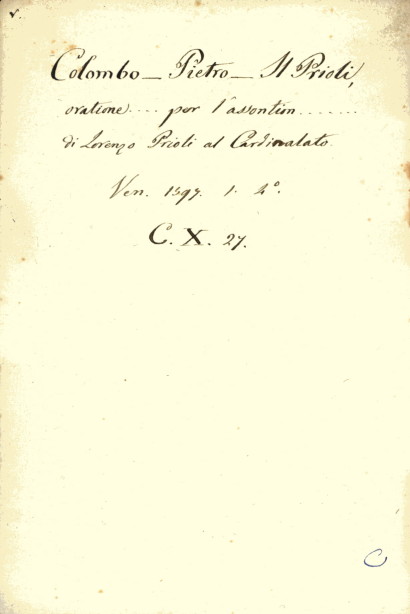 Colombo — Pietro — Il Prioli,
oratione.... per l'assontion.......
di Lorenzo Prioli al Cardinalato
Ven. 1597. 1. 4°.
C. X. 27.
C